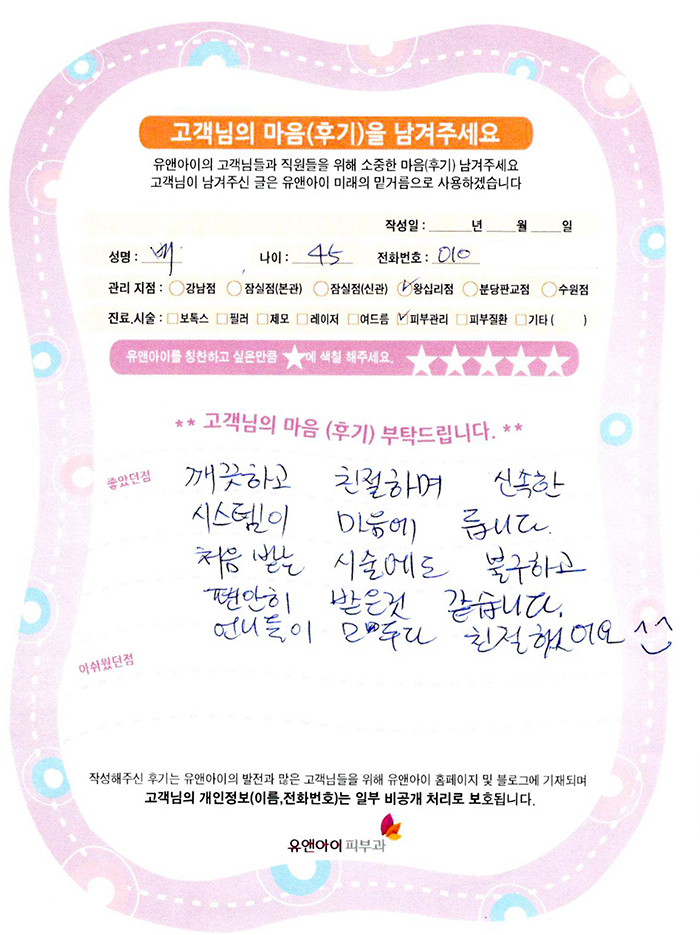 고객님의 마음(후기)을 남겨주세요
유앤아이의 고객님들과 직원들을 위해 소중한 마음(후기) 남겨주세요
고객님이 남겨주신 글은 유앤아이 미래의 밑거름으로 사용하겠습니다
작성일 : ____년 ____월 ____일
성명 : 배 나이 : 45 전화번호 : 010
관리 지점 : ○강남점 ○잠실점(본관) ○잠실점(신관) ✓왕십리점 ○분당판교점 ○수원점
진료,시술 : □보톡스 □필러 □제모 □레이저 □여드름 ✓피부관리 □피부질환 □기타 ( )
유앤아이를 칭찬하고 싶은만큼 ★에 색칠 해주세요. ★★★★★
** 고객님의 마음 (후기) 부탁드립니다. **
좋았던점
깨끗하고 친절하며 신속한
시스템이 마음에 듭니다.
처음 받는 시술에도 불구하고
편안히 받은것 같습니다.
언니들이 모두다 친절했어요 ^^
아쉬웠던점
작성해주신 후기는 유앤아이의 발전과 많은 고객님들을 위해 유앤아이 홈페이지 및 블로그에 기재되며
고객님의 개인정보(이름,전화번호)는 일부 비공개 처리로 보호됩니다.
유앤아이 피부과